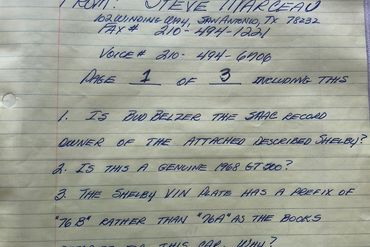 FROM: STEVE MARCEAU
102 WINDING WAY, SAN ANTONIO, TX 78232
FAX # 210-494-1221
VOICE # 210-494-6406
PAGE 1 OF 3 INCLUDING THIS
1. IS BUD BELZER THE SAAC RECORD
OWNER OF THE ATTACHED DESCRIBED SHELBY?
2. IS THIS A GENUINE 1968 GT500?
3. THE SHELBY VIN PLATE HAS A PREFIX OF
"76B" RATHER THAN "76A" AS THE BOOKS
THIS CAR. WHY?